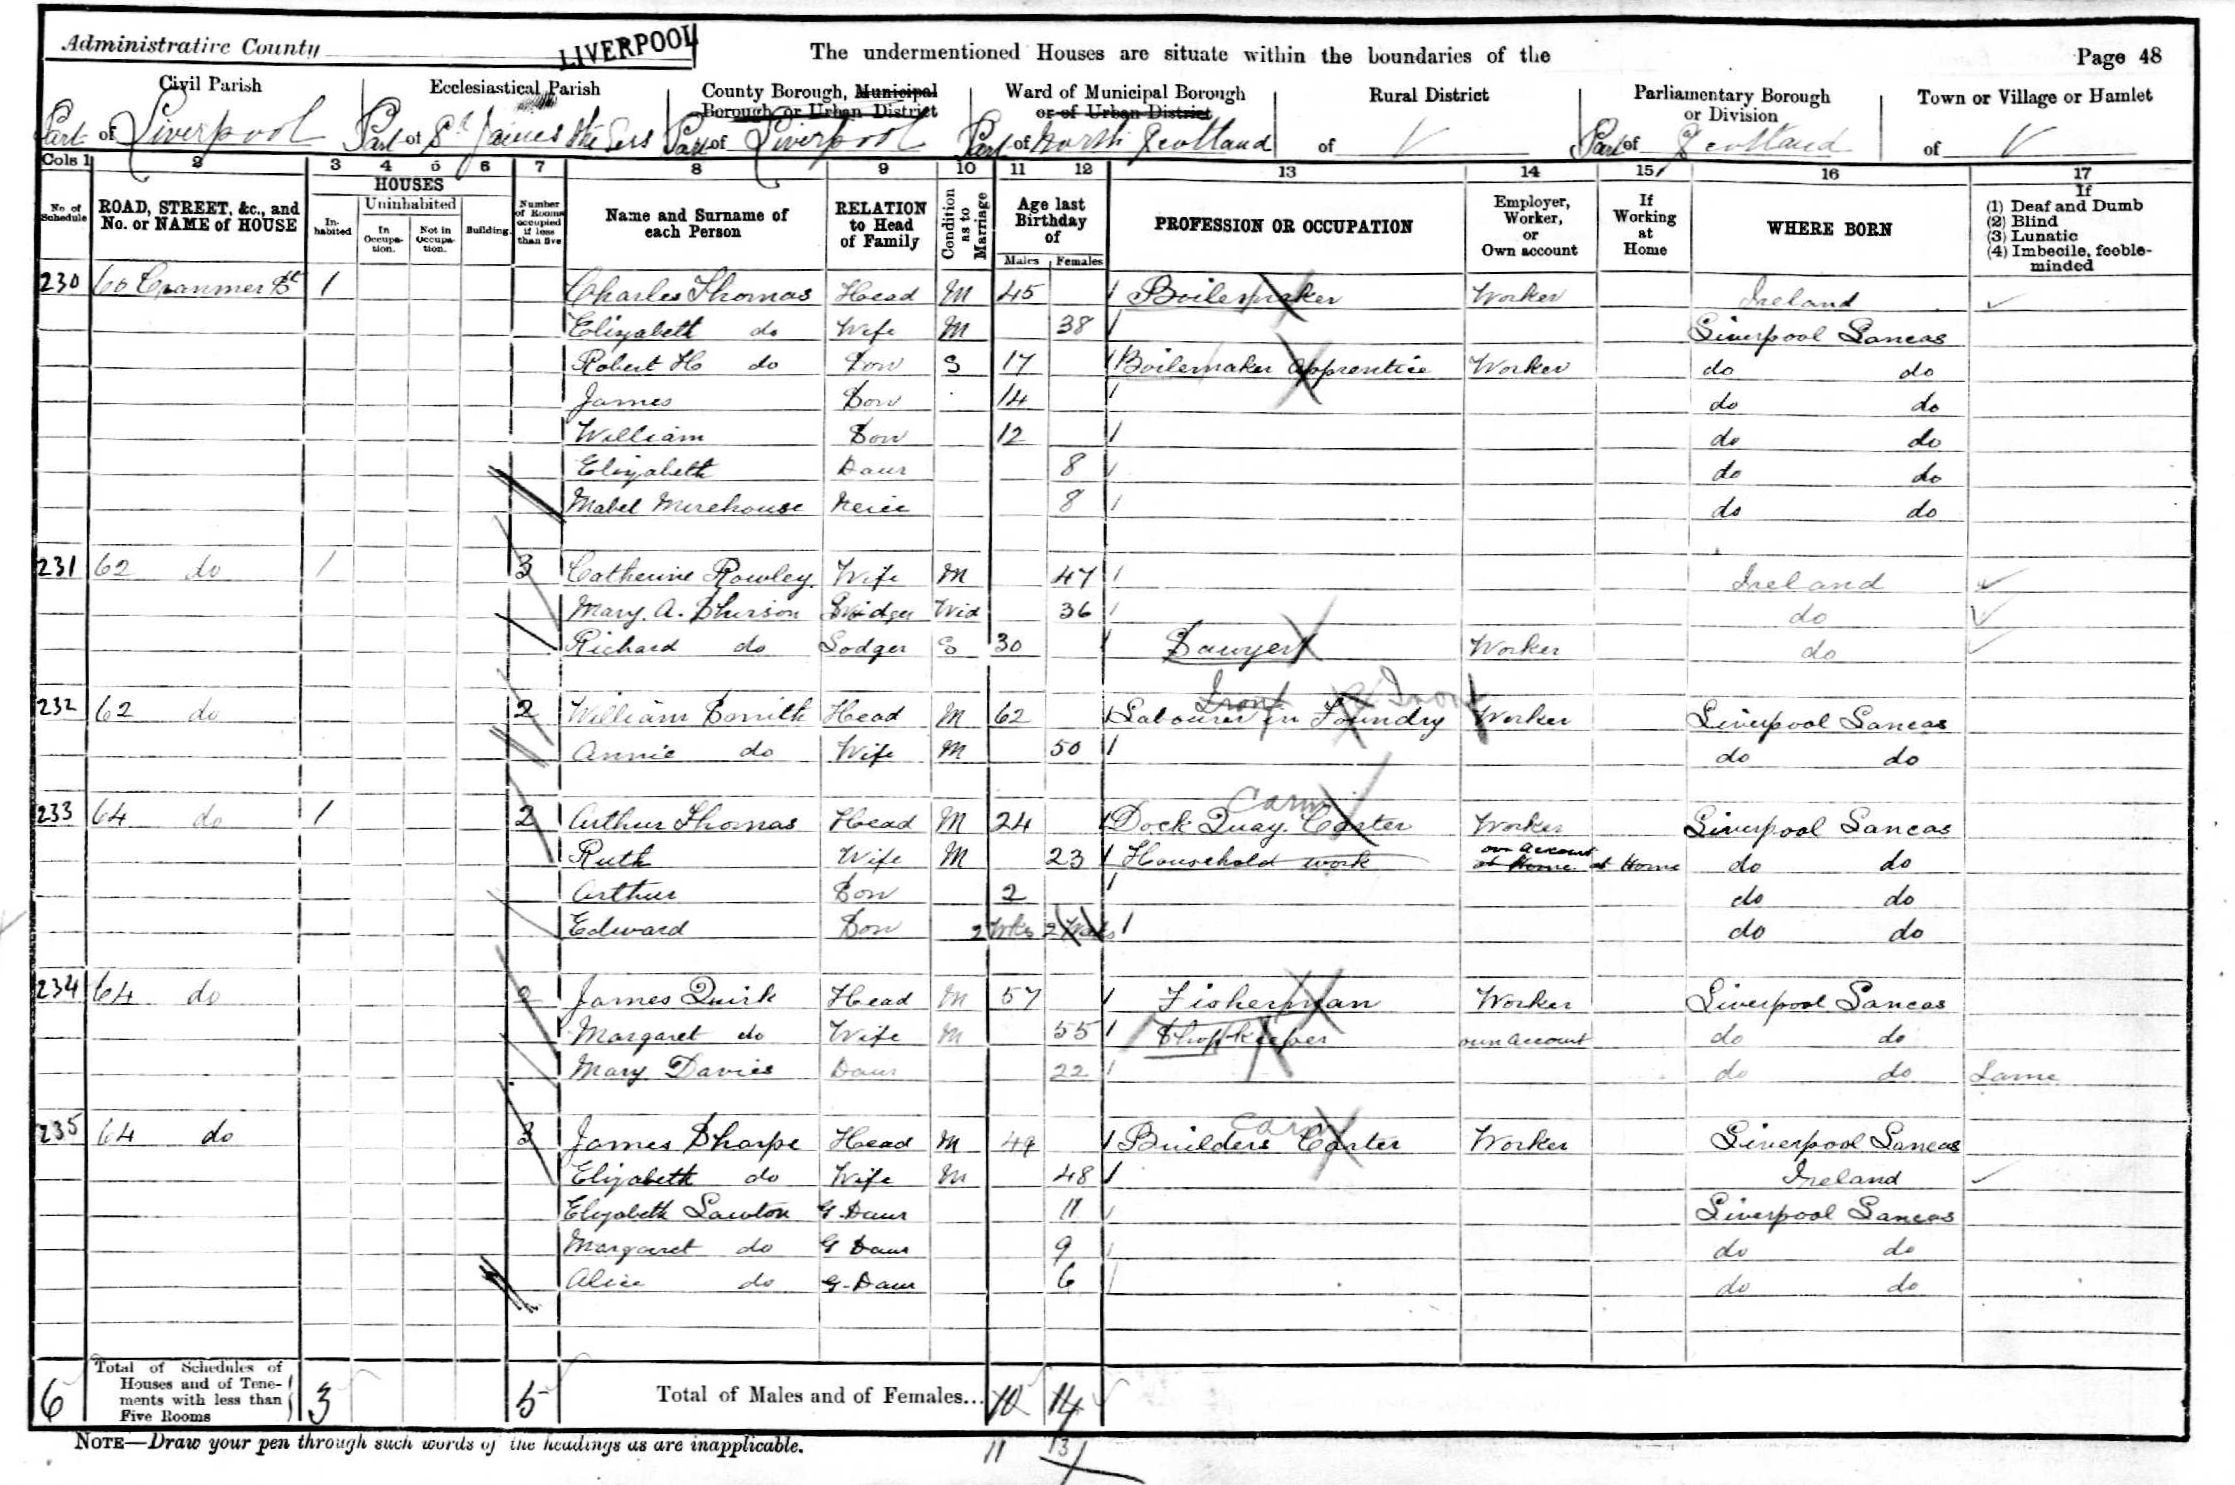 Administrative County LIVERPOOL The undermentioned Houses are situate within the boundaries of the Page 48
Civil Parish Ecclesiastical Parish County Borough, Municipal Borough or Urban District Ward of Municipal Borough or of Urban District Rural District Parliamentary Borough or Division Town or Village or Hamlet
Part of Liverpool Part of St James the Less Part of Liverpool Part of North Scotland of Part of Scotland of
Cols 1 2 3 4 5 6 7 8 9 10 11 12 13 14 15 16 17
No of Schedule ROAD, STREET, &c., and No. or NAME of HOUSE HOUSES Inhabited Uninhabited In Occupation. Not in Occupation. Building. Number of Rooms occupied if less than five Name and Surname of each Person RELATION to Head of Family Condition as to Marriage Age last Birthday of Males Females PROFESSION OR OCCUPATION Employer, Worker, or Own account If Working at Home WHERE BORN If (1) Deaf and Dumb (2) Blind (3) Lunatic (4) Imbecile, feeble-minded
230 60 Cranmer St 1 Charles Thomas Head M 45 Boilermaker Worker Ireland
Elizabeth do Wife M 38 Liverpool Lancas
Robert H do Son S 17 Boilermaker Apprentice Worker do do
James Son 14 do do
William Son 12 do do
Elizabeth Daur 8 do do
Mabel Merehouse Neice 8 do do
231 62 do 1 3 Catherine Rowley Wife M 47 Ireland
Mary. A. Wid 36 do
Richard do Lodger S 30 Sawyer Worker do
Iron Iron
232 62 do 2 William Smith Head M 62 Labourer in Foundry Worker Liverpool Lancas
Annie do Wife M 50 do do
Carm
233 64 do 1 2 Arthur Thomas Head M 24 Dock Quay. Carter Worker Liverpool Lancas
own account
Ruth Wife M 23 Household work at Home at Home do do
Arthur Son 2 do do
Edward Son 2 Wks 2 Weeks do do
234 64 do 2 James Quirk Head M 57 Fisherman Worker Liverpool Lancas
Margaret do Wife M 55 Shopkeeper own account do do
Mary Davies Daur 22 do do Lame
Carm
235 64 do 3 James Sharpe Head M 49 Builders Carter Worker Liverpool Lancas
Elizabeth do Wife M 48 Ireland
Elizabeth Lawton G. Daur 11 Liverpool Lancas
Margaret do G Daur 9 do do
Alice do G-Daur 6 do do
6 Total of Schedules of Houses and of Tenements with less than Five Rooms 3 5 Total of Males and of Females... 10 14
NOTE—Draw your pen through such words of the headings as are inapplicable. 11 13